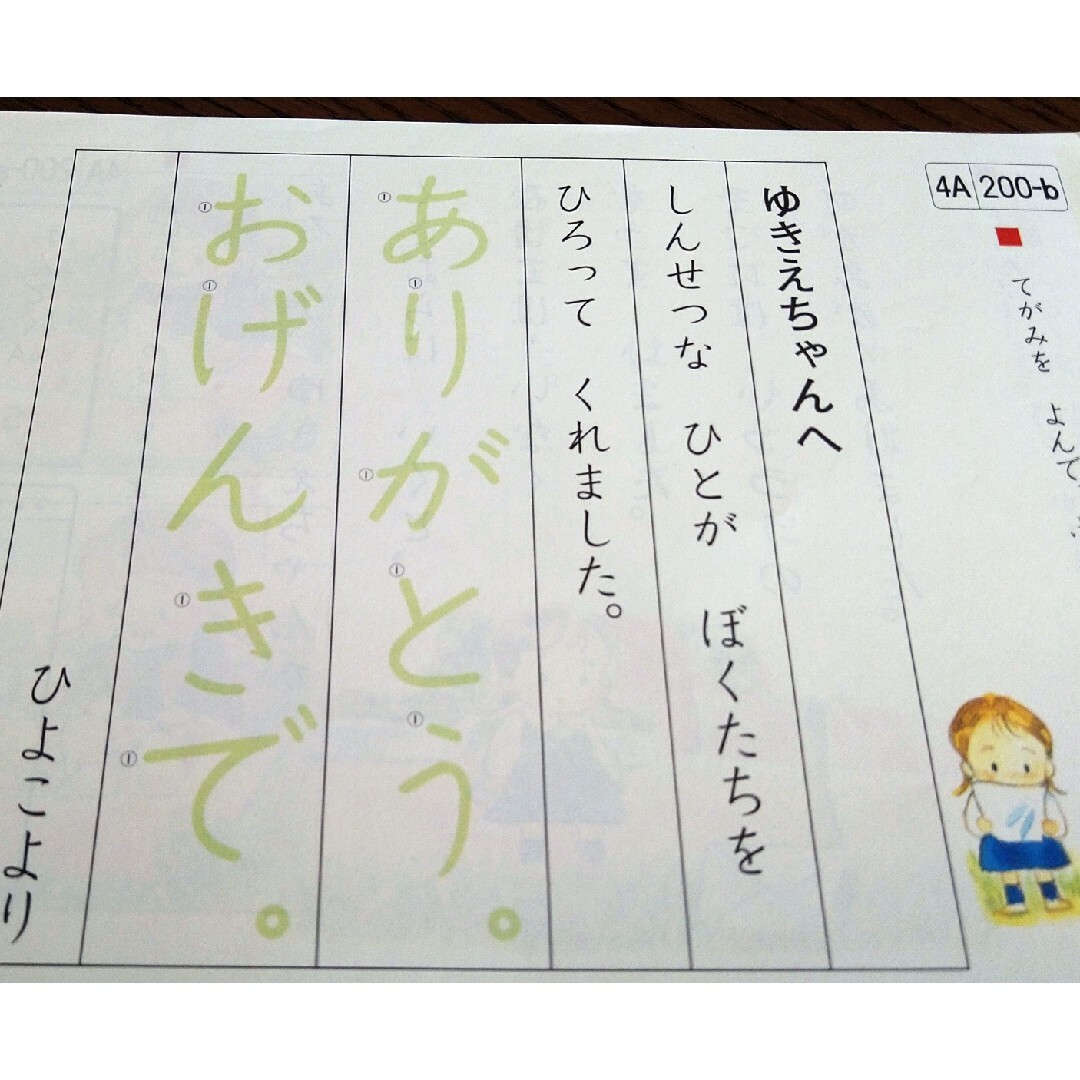 4A 200-b
■ てがみを よんで
ゆきえちゃんへ
しんせつな ひとが ぼくたちを
ひろって くれました。
ありがとう。
おげんきで。
ひよこより